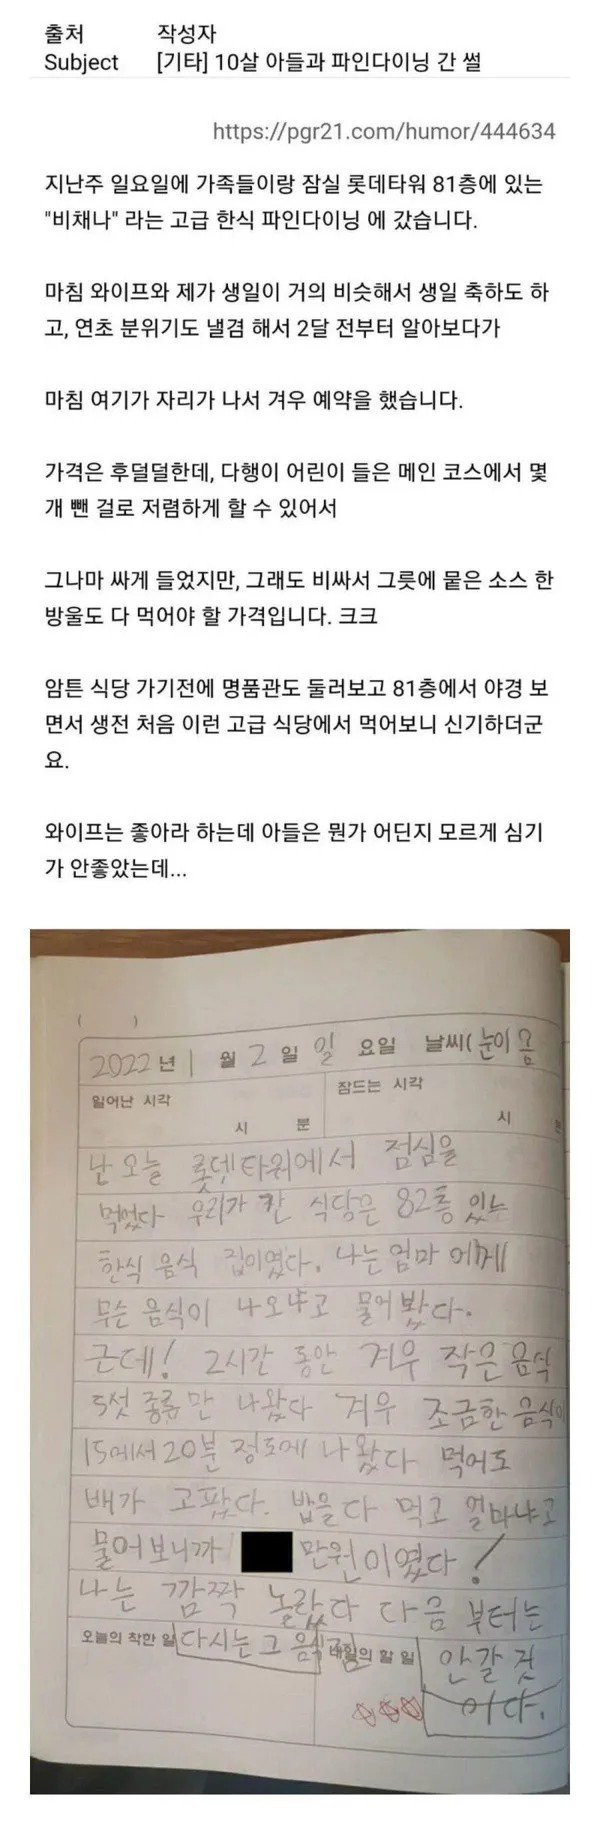 출처 작성자
Subject [기타] 10살 아들과 파인다이닝 간 썰
https://pgr21.com/humor/444634
지난주 일요일에 가족들이랑 잠실 롯데타워 81층에 있는
"비채나" 라는 고급 한식 파인다이닝 에 갔습니다.
마침 와이프와 제가 생일이 거의 비슷해서 생일 축하도 하
고, 연초 분위기도 낼겸 해서 2달 전부터 알아보다가
마침 여기가 자리가 나서 겨우 예약을 했습니다.
가격은 후덜덜한데, 다행이 어린이 들은 메인 코스에서 몇
개 뺀 걸로 저렴하게 할 수 있어서
그나마 싸게 들었지만, 그래도 비싸서 그릇에 뭍은 소스 한
방울도 다 먹어야 할 가격입니다. 크크
암튼 식당 가기전에 명품관도 둘러보고 81층에서 야경 보
면서 생전 처음 이런 고급 식당에서 먹어보니 신기하더군
요.
와이프는 좋아라 하는데 아들은 뭔가 어딘지 모르게 심기
가 안좋았는데...
( )
2022년 1월 2일 일요일 날씨(눈이 옴
일어난 시각 잠드는 시각
시 분 시 분
난 오늘 롯데타워에서 점심을
먹었다 우리가 간 식당은 82층 있는
한식 음식 집이였다. 나는 엄마에게
무슨 음식이 나오냐고 물어봤다.
근데! 2시간 동안 겨우 작은 음식
5섯 종류만 나왔다 겨우 조금한 음식이
15에서 20분 정도에 나왔다 먹어도
배가 고팠다. 밥을 다 먹고 얼마냐고
물어보니까 만원이였다!
나는 깜짝 놀랐다 다음 부터는
오늘의 착한 일 다시는 그 음식점 내일의 할 일 안 갈 것
이다.